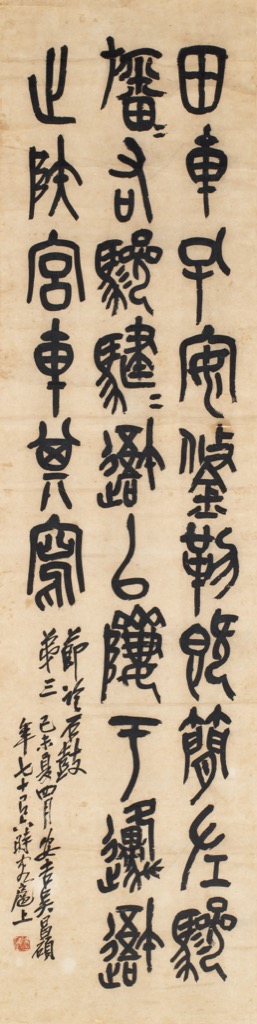 田車孔安鋚勒既簡左驂
旛=右驂騝=避以隮于邍避
止陝宮車其寫
節臨石鼓
第三 己未夏四月安吉吳昌碩
年七十六時扈上